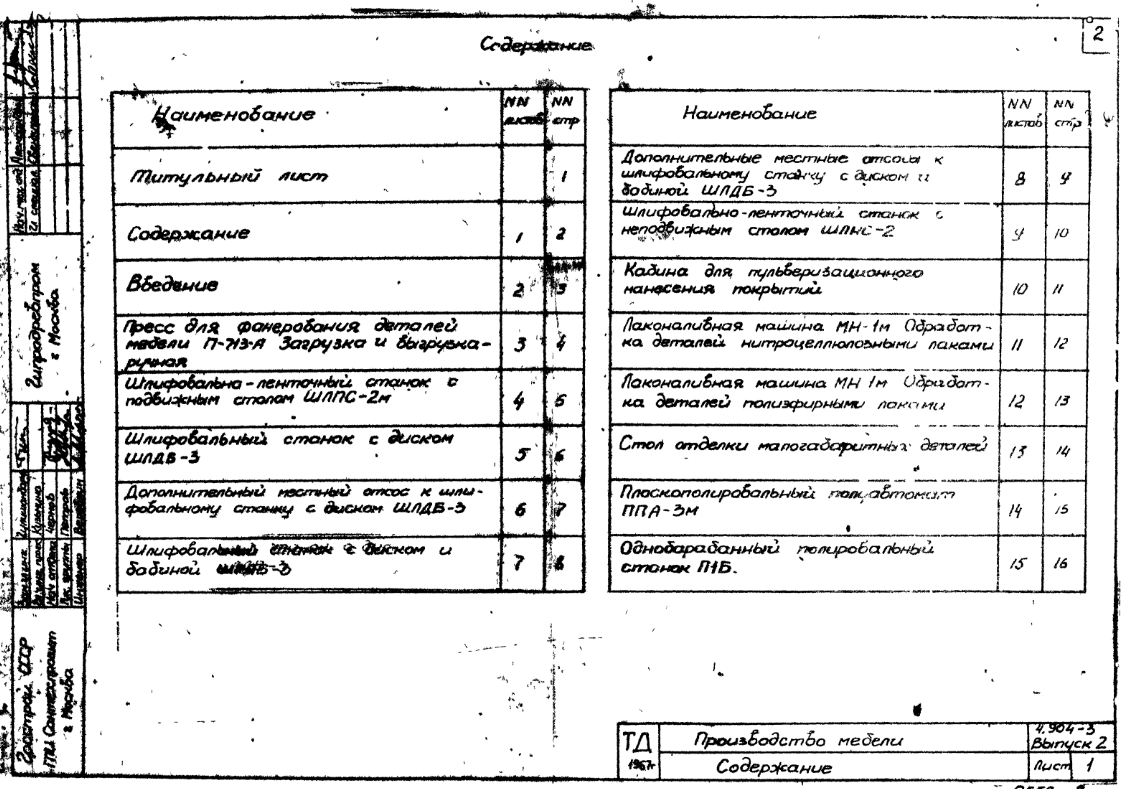 2
Содержание
Наименование
NN листов
NN стр
Титульный лист
1
Содержание
1
2
Введение
2
3
Пресс для фанерования деталей
мебели П-713-А Загрузка и выгрузка-
ручная
3
4
Шлифовально-ленточный станок с
подвижным столом ШЛПС-2м
4
5
Шлифовальный станок с диском
ШЛДБ-3
5
6
Дополнительный местный отсос к шли-
фовальному станку с диском ШЛДБ-3
6
7
Шлифовальный станок с диском и
бобиной ШЛДБ-3
7
8
Наименование
NN листов
NN стр
Дополнительные местные отсосы к
шлифовальному станку с диском и
бобиной ШЛДБ-3
8
9
Шлифовально-ленточный станок с
неподвижным столом ШЛНС-2
9
10
Кабина для пульверизационного
нанесения покрытий
10
11
Лаконаливная машина МН-1м Обработ-
ка деталей нитроцеллюлозными лаками
11
12
Лаконаливная машина МН 1м Обработ-
ка деталей полиэфирными лаками
12
13
Стол отделки малогабаритных деталей
13
14
Плоскополировальный полуавтомат
ППА-3м
14
15
Однобарабанный полировальный
станок П1Б.
15
16
Гипродревпром
г Москва
Госстрой СССР
ГПИ Сантехпроект
г Москва
ТД
1967г
Производство мебели
4.904-3
Выпуск 2
Содержание
Лист 1